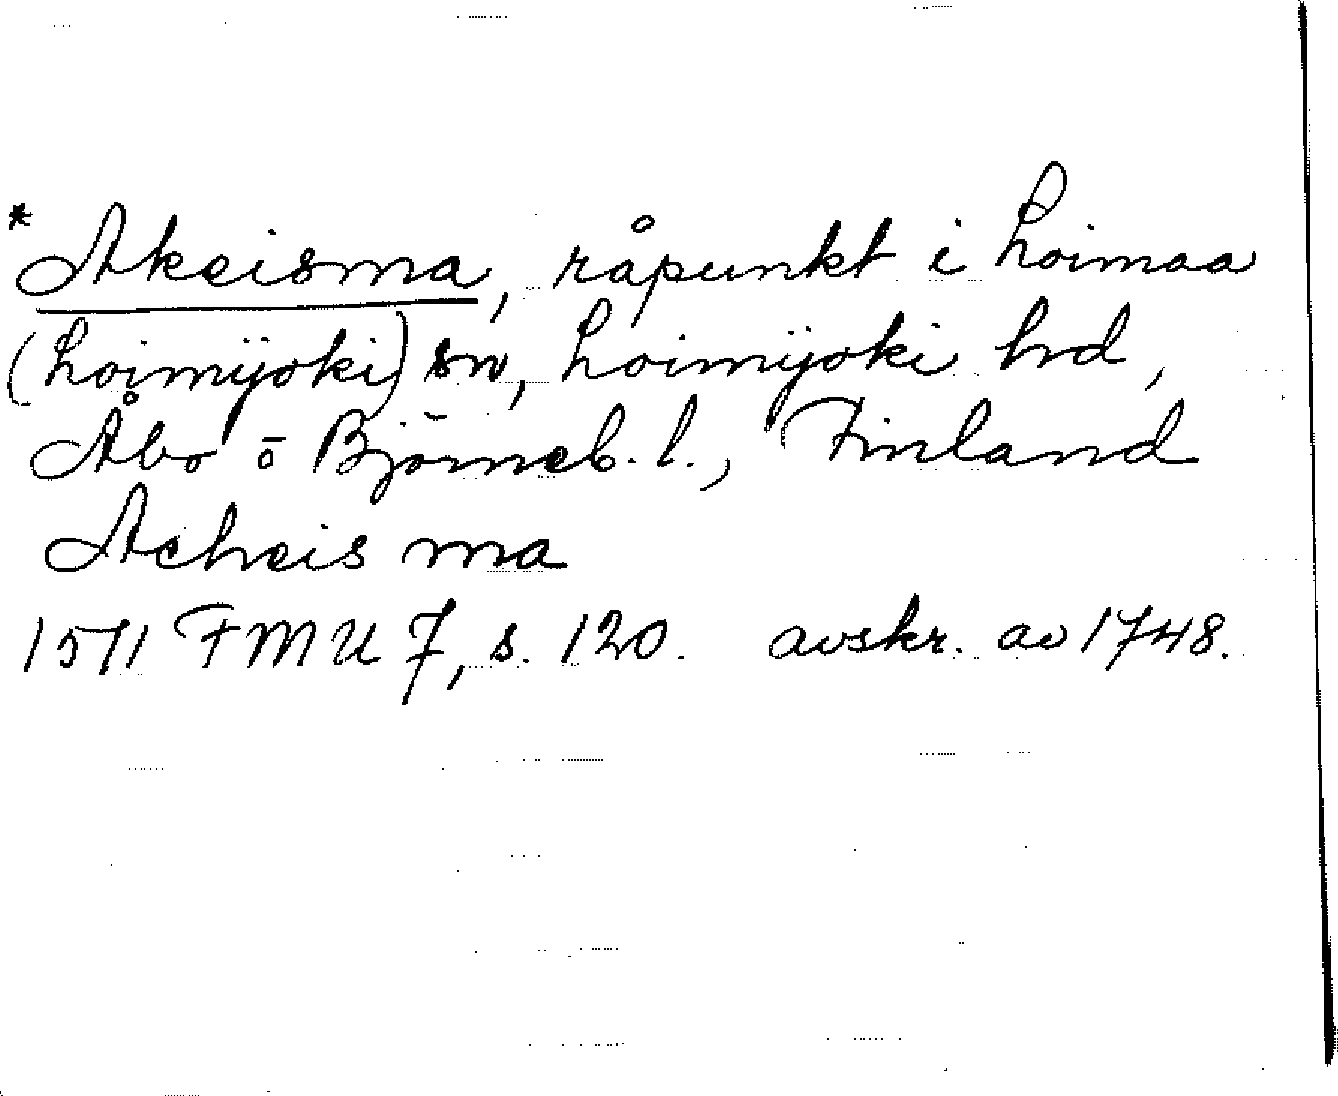 *Akeisma, råpunkt i Loimaa
(Loimijoki) sn, Loimijoki hd,
Åbo o Björneb. l., Finland
Acheis ma
1511 FMU 7, s. 120. avskr. av 1748.